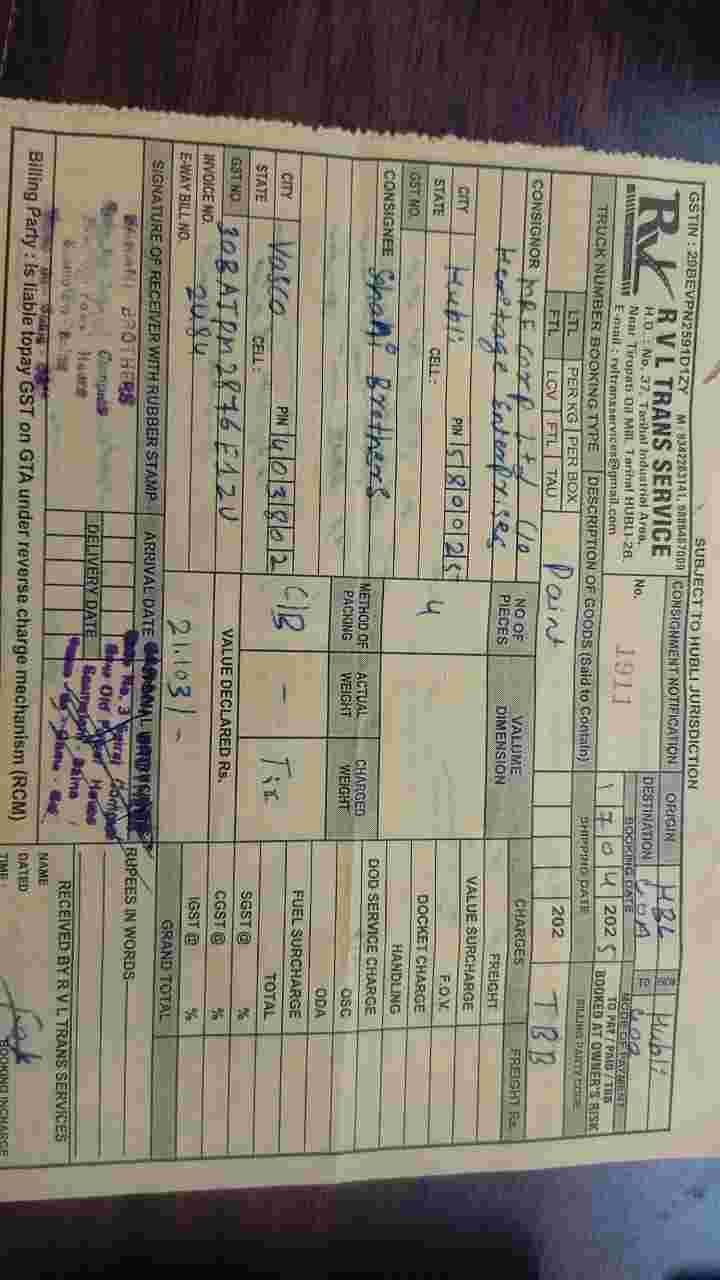 SUBJECT TO HUBLI JURISDICTION
GSTIN : 29BEVPN2591D1ZY M : 9342283141,
RVL TRANS SERVICE
H.O. : No. 37, Tarihal Industrial Area,
Near Tirupati Oil Mill, Tarihal HUBLI-26
E-mail : rvltransservices@gmail.com
CONSIGNMENT NOTIFICATION
No. 1911
ORIGIN HBL
DESTINATION GOA
FROM Hubli
TO Goa
BOOKING DATE 17 04 2025
SHIPPING DATE 202
MODE OF PAYMENT
TO PAY / PAID / TBB
BOOKED AT OWNER'S RISK
BILLING PARTY CODE
TRUCK NUMBER BOOKING TYPE DESCRIPTION OF GOODS (Said to Contain)
LTL PER KG PER BOX
FTL LCV FTL TAU
Paint
TBB
CONSIGNOR Corp Ltd C/o
Heritage Enterprises
CITY Hubli PIN 580025
STATE CELL :
GST NO.
CONSIGNEE Shakti Brothers
CITY Vasco PIN 403802
STATE CELL :
GST NO.
INVOICE NO. 2484
E-WAY BILL NO.
NO OF PIECES VALUME DIMENSION
4
METHOD OF PACKING ACTUAL WEIGHT CHARGED WEIGHT
C/B - Fix
VALUE DECLARED Rs.
21,103/-
CHARGES FREIGHT Rs.
FREIGHT
VALUE SURCHARGE
F.O.V.
DOCKET CHARGE
HANDLING
DOD SERVICE CHARGE
OSC
ODA
FUEL SURCHARGE
TOTAL
SGST @ %
CGST @ %
IGST @ %
GRAND TOTAL
SIGNATURE OF RECEIVER WITH RUBBER STAMP
BROTHERS
ARRIVAL DATE
DELIVERY DATE
RUPEES IN WORDS
RECEIVED BY R V L TRANS SERVICES
NAME
DATED
TIME :
BOOKING INCHARGE
Billing Party : is liable topay GST on GTA under reverse charge mechanism (RCM)